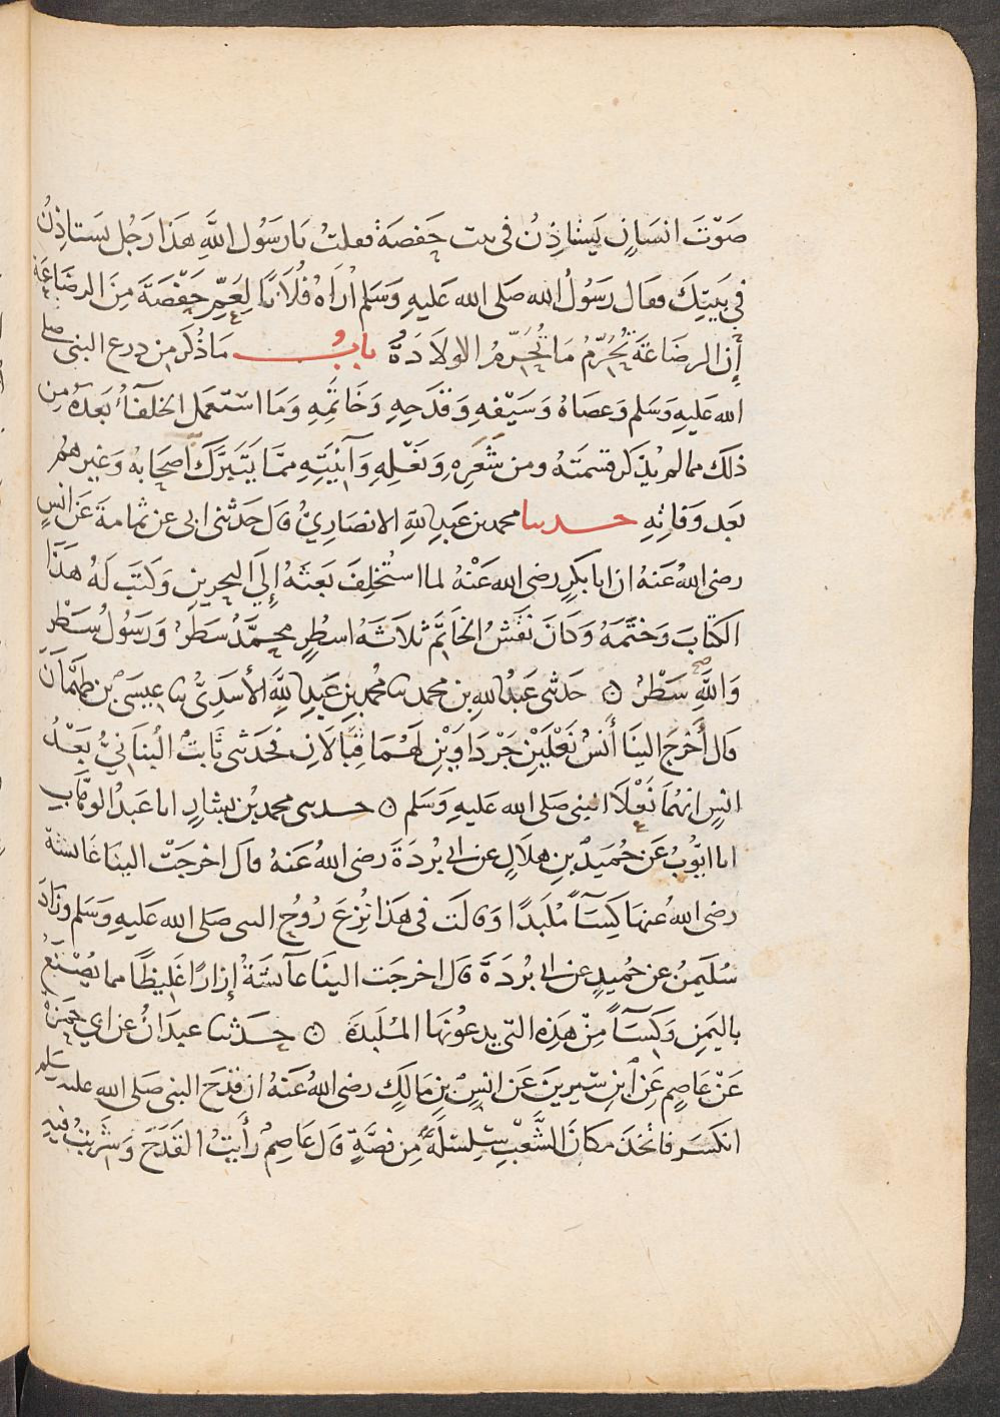 صَوْتَ انسَانٍ يَستَاذِنُ فى بيت حَفصَةَ فعلتُ يَا رَسُول اللَّهِ هَذا رَجُل يَستاذِنُ
فى بَيتِكَ فقال رَسُولُ الله صَلى الله عَليهِ وَسَلم اُرَاهُ فُلَانًا لِعَمِّ حَفْصَةَ مِنَ الرضَاعَةِ
إن الرضَاعَةَ تُحَرِّمُ مَا تُحَرِّمُ الولَادَةُ بابُ مَا ذُكَر من درع النبى صلى
الله عَليهِ وَسَلم وَعصَاهُ وَسَيْفهِ وَقدَحِهِ وَخَاتَمِهِ وَمَا استَعمَل الخلَفَآءُ بَعدَهُ مِن
ذلكَ مما لم يذكر قسمَتَهُ ومن شَعَرِهِ وَنَعْلِهِ وَآنِيَتِهِ ممَّا يَتَبَرَّكَ اصحَابهُ وَغيرهُم
بَعد وَفَاتِهِ حدثنا محمد بن عَبدِ اللهِ الانصَارِيُّ قال حَدثنى ابى عن ثمامةَ عَن انَسٍ
رضى اللهُ عَنهُ ان ابا بكرٍ رضى الله عَنْهُ لما استُخلِفَ بَعثَهُ إِلَى البحرين وَكتَبَ لَهُ هَذَا
الكتَابَ وَختَمَهُ وَكانَ نَقشُ الخَاتَمِ ثلاَثَةَ اسطُرٍ محمَّدٌ سَطرٌ وَرَسُولُ سَطْر
وَاللَّهِ سَطْرٌ ه حَدثنى عَبدُ اللهِ بن محمد ثنا محُمد بن عَبدِ اللَّهِ الأسَدِىُّ ثنا عيسَى بن طَهْمَانَ
قال أَخْرجَ الينَا أَنسٌ نَعْلَيْنِ جَرْدَاوَيْنِ لَهُمَا قِبَالَانِ فحَدثنى ثَابتٌ البُنانِىُّ بَعْدُ
انَسٍ انهُمَا نَعْلَا النبى صَلى الله عَليهِ وَسَلم ه حدثنى محمد بْن بشارٍ انا عَبدُ الوهَّابِ
انا ايُّوبُ عَن حُمَيدٍ بنِ هلَالٍ عن ابى بُردَةَ رضى اللهُ عَنهُ قال اخرجَتْ الينَا عَائشَة
رضى اللهُ عَنهَا كِسَآءً مُلَبدًا وَقَالَت فى هَذا نُزعَ رُوحُ النبى صَلى الله عَليهِ وَسَلم وزَادَ
سُلَيمنُ عن حُميدٍ عن ابى بُردَةَ قال اخرجَت الينَا عآئشَةُ إِزارًا غَليظًا مما يُصْنَعُ
باليَمنِ وَكِسَآءً مِنْ هَذِهِ التى يدعُونَهَا المُلَبدَةَ ه حَدثنا عبدَانُ عن ابى حَمزَةَ
عَنْ عَاصِمٍ عَن ابنِ سيرينَ عَن انَس بنِ مَالكٍ رضى اللهُ عَنهُ ان قدَحَ النبى صَلى الله عليه وسلم
انكَسَر فاتخَذَ مكانَ الشَّعْبِ سِلسِلَةً مِن فضَّةٍ قال عَاصِمٌ رأَيتُ القَدَحَ وَشَرِبتُ فيهِ